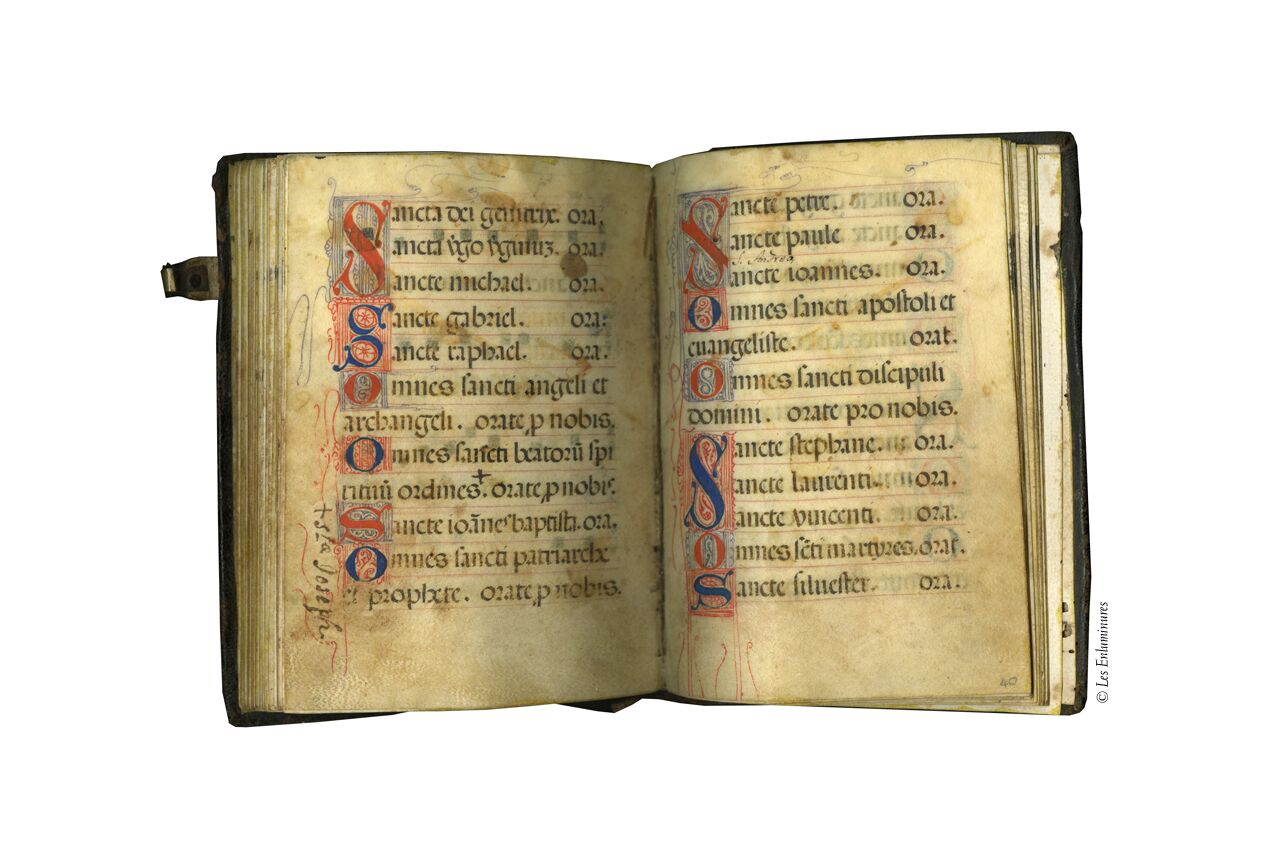 Sancta dei genitrix. ora.
Sancta v̄go v̄ginuʒ. ora.
Sancte michael. ora.
Sancte gabriel. ora.
Sancte raphael. ora.
Omnes sancti angeli et
archangeli. orate p nobis.
Omnes sancti beatorū spi
rituū ordines. + orate p nobis.
Sancte ioānes baptista. ora.
Omnes sancti patriarche
et prophete. orate p nobis.
+ sta Joseph.
Sancte petre. ora.
Sancte paule ora.
S. Andrea
Sancte ioannes. ora.
Omnes sancti apostoli et
euangeliste. orat.
Omnes sancti discipuli
domini. orate pro nobis.
Sancte stephane. ora.
Sancte laurenti. ora.
Sancte vincenti. ora.
Omnes sc̄ti martyres. orat.
Sancte siluester. ora.
40
© Les Enluminures